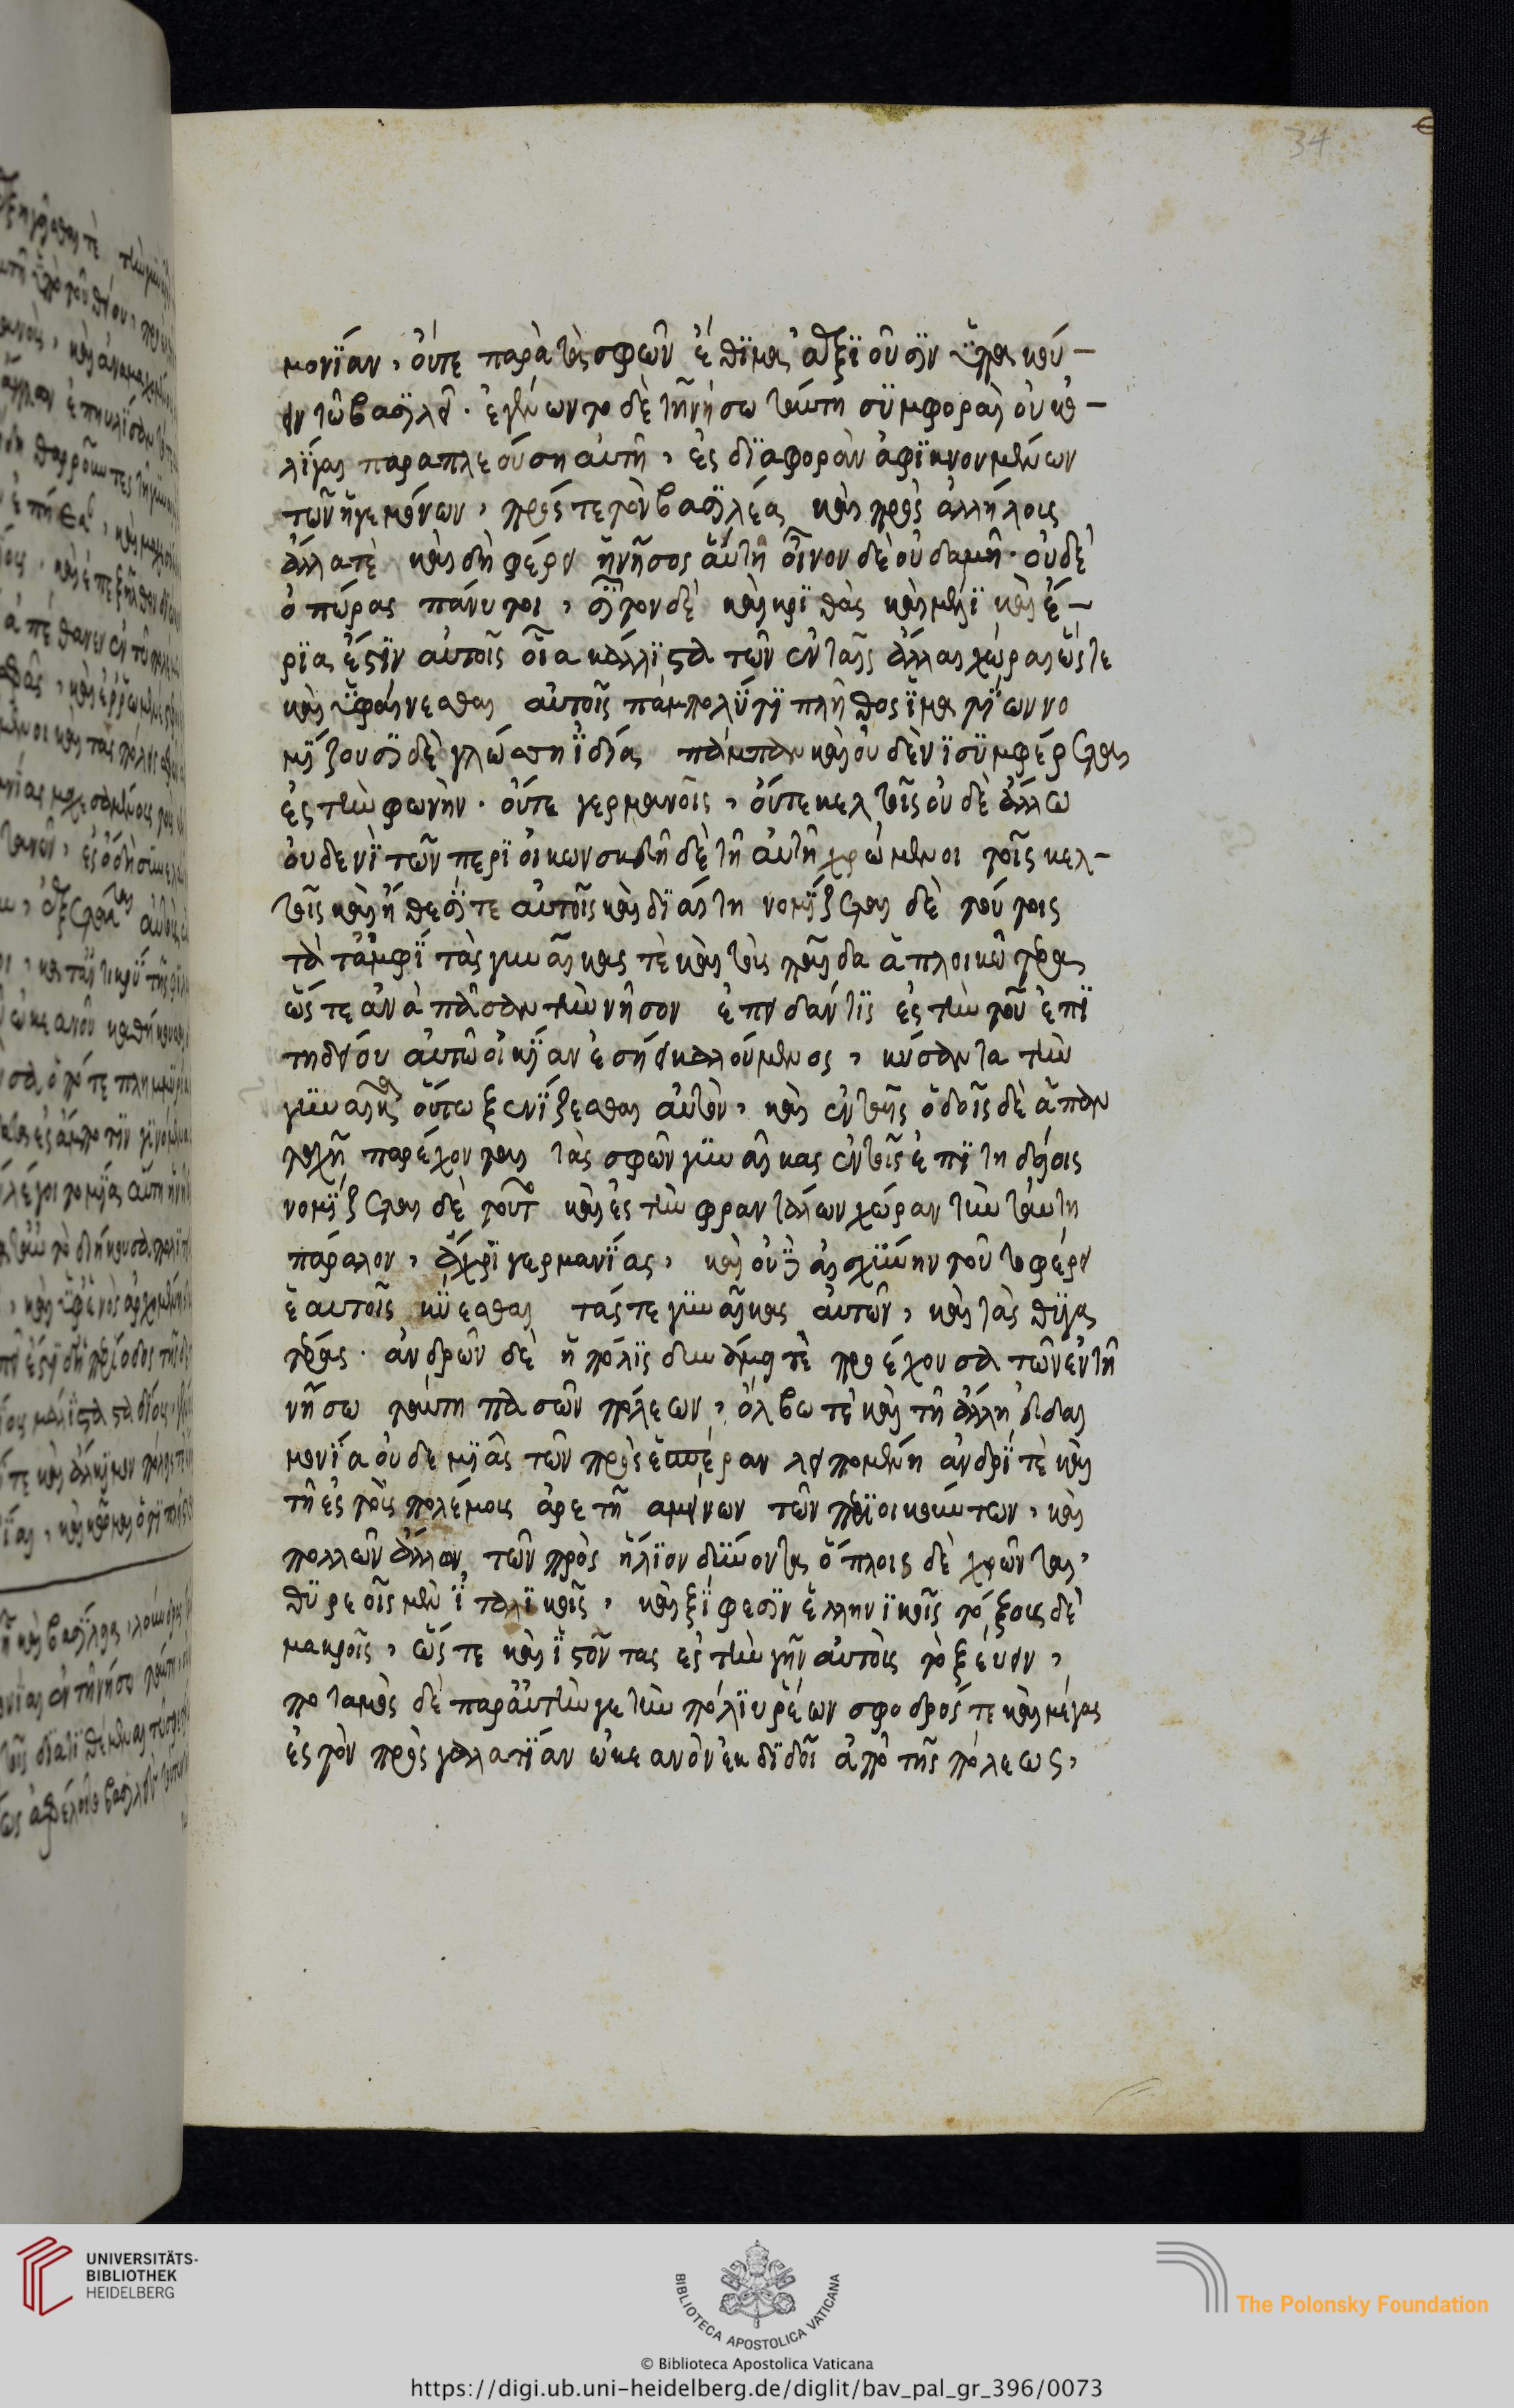 μονίαν, οὔτε παρὰ τὰ σφῶν ἔθιμα ἀξιοῦσιν ὑπακού-
ειν τῶ βασιλεῖ. ἐγένοντο δὲ τῆ νήσω ταύτη συμφοραὶ οὐκ ὀ-
λίγαι παραπλεούση αὐτῆ, ἐς διαφορὰν ἀφικνουμένων
τῶν ἡγεμόνων, πρός τε τὸν βασιλέα καὶ πρὸς ἀλλήλους
ἄλλα τὲ καὶ δὴ φέρει ἡ νῆσος αὕτη οἶνον δὲ οὐδαμῆ. οὐδὲ
ὀπώρας πάνυ τοι, σῖτον δὲ καὶ κριθὰς καὶ μέλι καὶ ἔ-
ρια ἐστὶν αὐτοῖς οἷα κάλλιστα τῶν ἐν ταῖς ἄλλαις χώραις ὥστε
καὶ ὑφαίνεσθαι αὐτοῖς πάμπολύ τι πλῆθος ἱματίων νο
μίζουσι δὲ γλώσση ἰδία πάμπαν καὶ οὐδενὶ συμφέρεται
ἐς τὴν φωνὴν. οὔτε γερμανοῖς, οὔτε κελτοῖς οὐδὲ ἄλλω
οὐδενὶ τῶν περιοίκων σκευῆ δὲ τῆ αὐτῆ χρώμενοι τοῖς κελ-
τοῖς καὶ ἤθεσί τε αὐτοῖς καὶ διαίτη νομίζεται δὲ τούτοις
τὰ τἀμφὶ τὰς γυναῖκας τὲ καὶ τοὺς παῖδα ἁπλοικώτερα
ὥστε ἀνὰ πᾶσαν τὴν νῆσον ἐπειδάν τις ἐς τὴν τοῦ ἐπι
τηδείου αὐτῶ οἰκίαν ἐσήει καλούμενος, κύσαντα τὴν
γυναῖκα οὕτω ξενίζεσθαι αὐτὸν, καὶ ἐν ταῖς ὁδοῖς δὲ ἅπαν
ταχῆ παρέχονται τὰς σφῶν γυναῖκας ἐν τοῖς ἐπιτηδείοις
νομίζεται δὲ τοῦτο καὶ ἐς τὴν φρανταλων χώραν τὴν ταύτη
πάραλον, ἄχρι γερμανίας, καὶ οὐδὲ αἰσχύνην τοῦτο φέρει
ἑαυτοῖς κύεσθαι τάς τε γυναῖκας αὐτῶν, καὶ τὰς θυγα
τέρας. ἀνδρῶν δὲ ἡ πόλις δυνάμει τὲ προέχουσα τῶν ἐν τῆ
νήσω ταύτη πασῶν πόλεων, ὄλβω τὲ καὶ τῆ ἄλλη εὐδαι
μονία οὐδεμιᾶς τῶν πρὸς ἑσπέραν λειπομένη ἀνδρία τὲ καὶ
τῆ ἐς τοὺς πολέμους ἀρετῆ ἀμείνων τῶν περιοικούντων, καὶ
πολλῶν ἄλλων τῶν πρὸς ἥλιον δύνοντα ὅπλοις δὲ χρῶνται,
θυρεοῖς μὲν ἰταλικοῖς, καὶ ξίφεσιν ἑλληνικοῖς τόξοις δὲ
μακροῖς, ὥστε καὶ ἱστῶντας ἐς τὴν γῆν αὐτοὺς τοξεύειν,
ποταμὸς δὲ παρ' αὐτήν γε τὴν πόλιν ῥέων σφοδρός τε καὶ μέγας
ἐς τὸν πρὸς γαλατίαν ὠκεανὸν ἐκδιδοῖ ἀπὸ τῆς πόλεως,
34
UNIVERSITÄTS-
BIBLIOTHEK
HEIDELBERG
BIBLIOTECA APOSTOLICA VATICANA
The Polonsky Foundation
© Biblioteca Apostolica Vaticana
https://digi.ub.uni-heidelberg.de/diglit/bav_pal_gr_396/0073